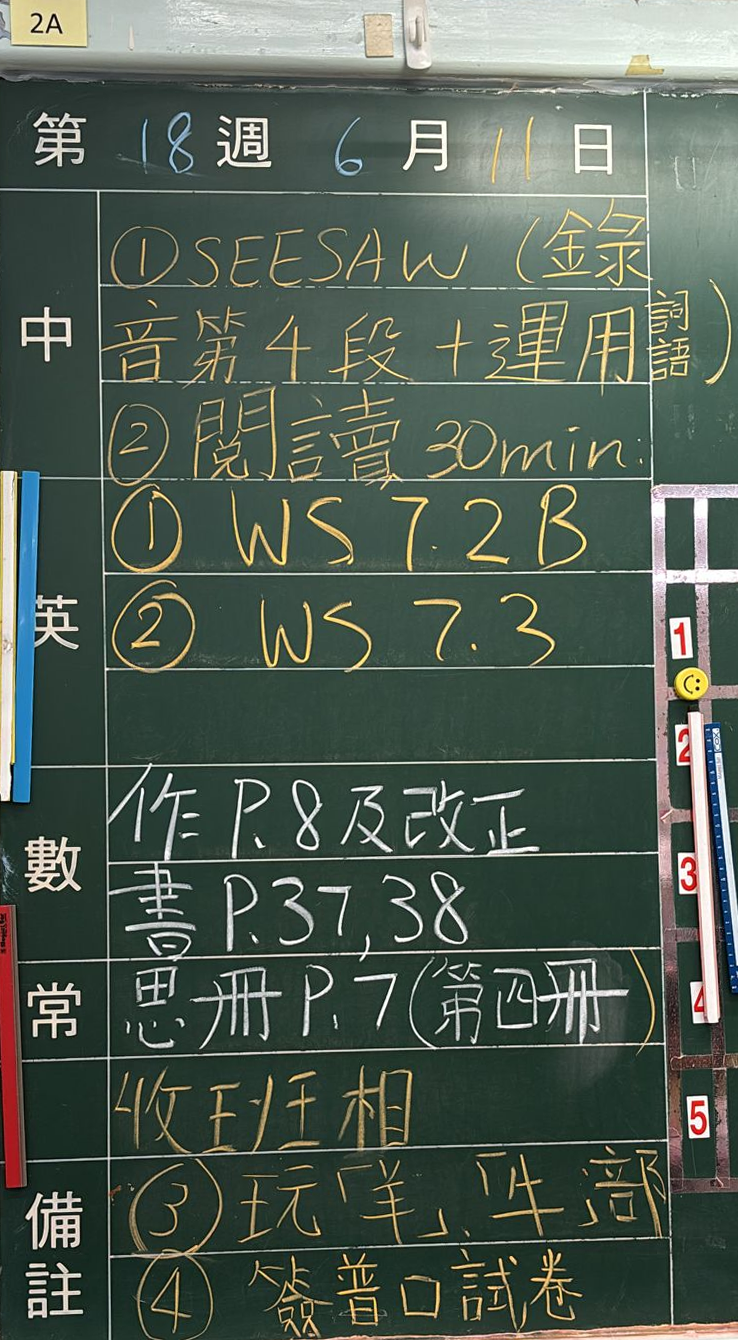 2A
第 18 週 6 月 11 日
中
① SEESAW (錄
音第4段+運用詞語)
② 閱讀 30min.
英
① WS 7.2B
② WS 7.3
數
作 P.8及改正
書 P.37,38
常
思冊 P.7(第四冊)
收班相
備註
③ 玩「羊」、「牛」部
④ 簽普口試卷
1
2
3
4
5